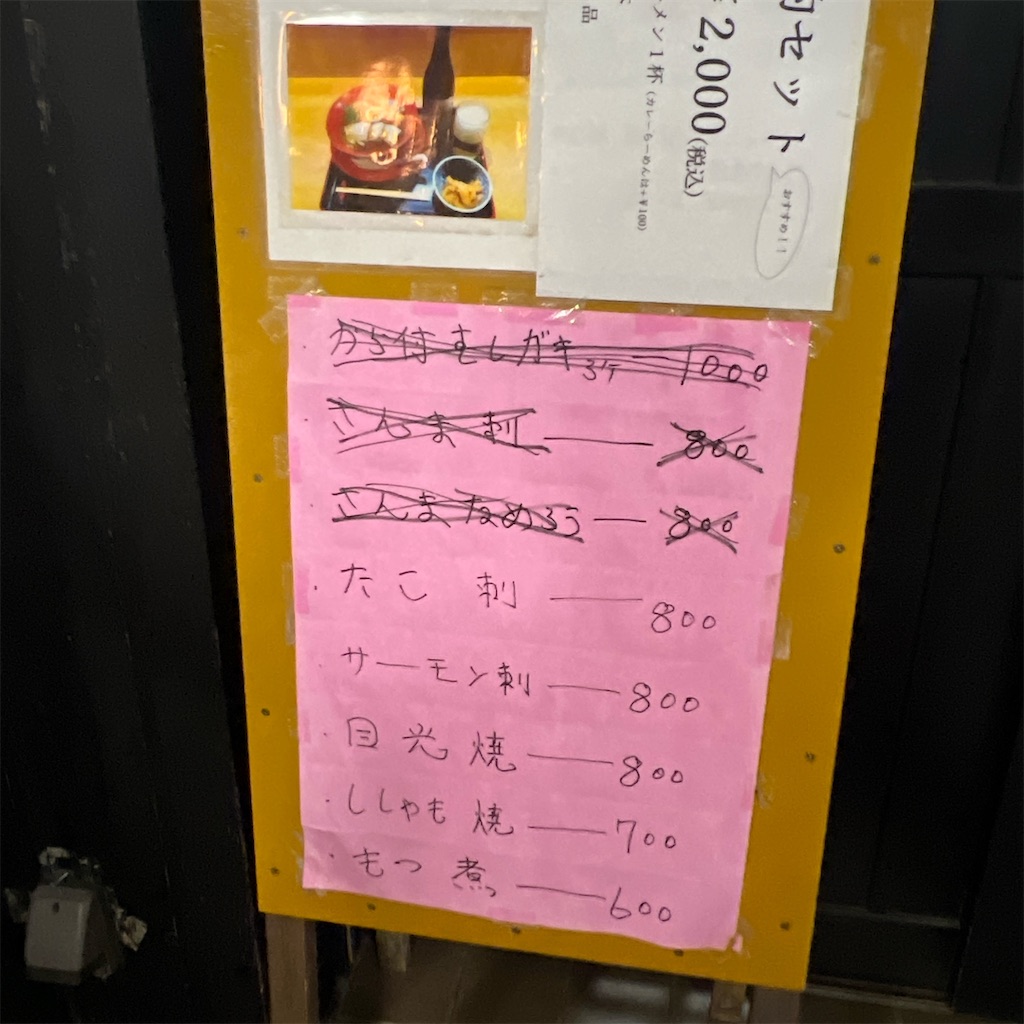 セット
おすすめ!!
¥2,000(税込)
メン1杯(カレーらーめんは+¥100)
品
から付むしガキ 3ケ 1000
さんま刺 — 800
さんまなめろう — 800
・たこ刺 — 800
・サーモン刺 — 800
・目光焼 — 800
・ししゃも焼 — 700
・もつ煮 — 600